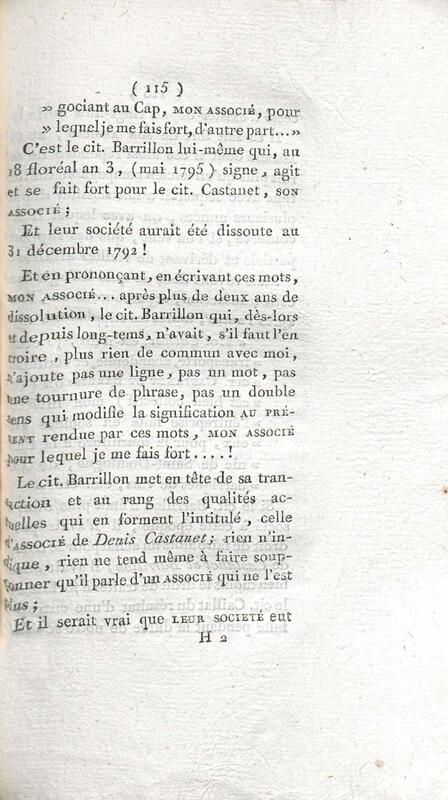 ( 115 )
» gociant au Cap, MON ASSOCIÉ, pour
» lequel je me fais fort, d'autre part...»
C'est le cit. Barrillon lui-même qui, au
18 floréal an 3, (mai 1795) signe, agit
et se fait fort pour le cit. Castanet, SON
ASSOCIÉ ;
Et leur société aurait été dissoute au
31 décembre 1792 !
Et en prononçant, en écrivant ces mots,
MON ASSOCIÉ... après plus de deux ans de
dissolution, le cit. Barrillon qui, dès-lors
et depuis long-tems, n'avait, s'il faut l'en
croire, plus rien de commun avec moi,
n'ajoute pas une ligne, pas un mot, pas
une tournure de phrase, pas un double
sens qui modifie la signification AU PRÉ-
SENT rendue par ces mots, MON ASSOCIÉ
pour lequel je me fais fort....!
Le cit. Barrillon met en tête de sa tran-
saction et au rang des qualités ac-
tuelles qui en forment l'intitulé, celle
d'ASSOCIÉ de Denis Castanet; rien n'in-
dique, rien ne tend même à faire soup-
çonner qu'il parle d'un ASSOCIÉ qui ne l'est
plus ;
Et il serait vrai que LEUR SOCIETÉ eut
H 2